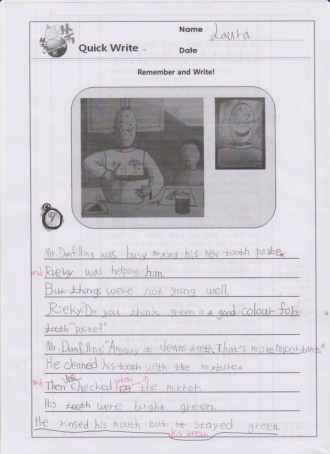 Name Laura
Quick Write
Date
Remember and Write!
Mr. Dunfilling was busy mixing his new tooth paste
and Ricky was helping him.
But things were not going well.
Ricky: Do you think green is a good colour for
tooth paste?"
Mr. Dunfilling: "Anyway it cleans teeth. That's more important"
He cleaned his tooth with the mixture
and Then he checked when in the mirror.
His tooth were bright green.
He rinsed his mouth but he stayed green.
his teeth